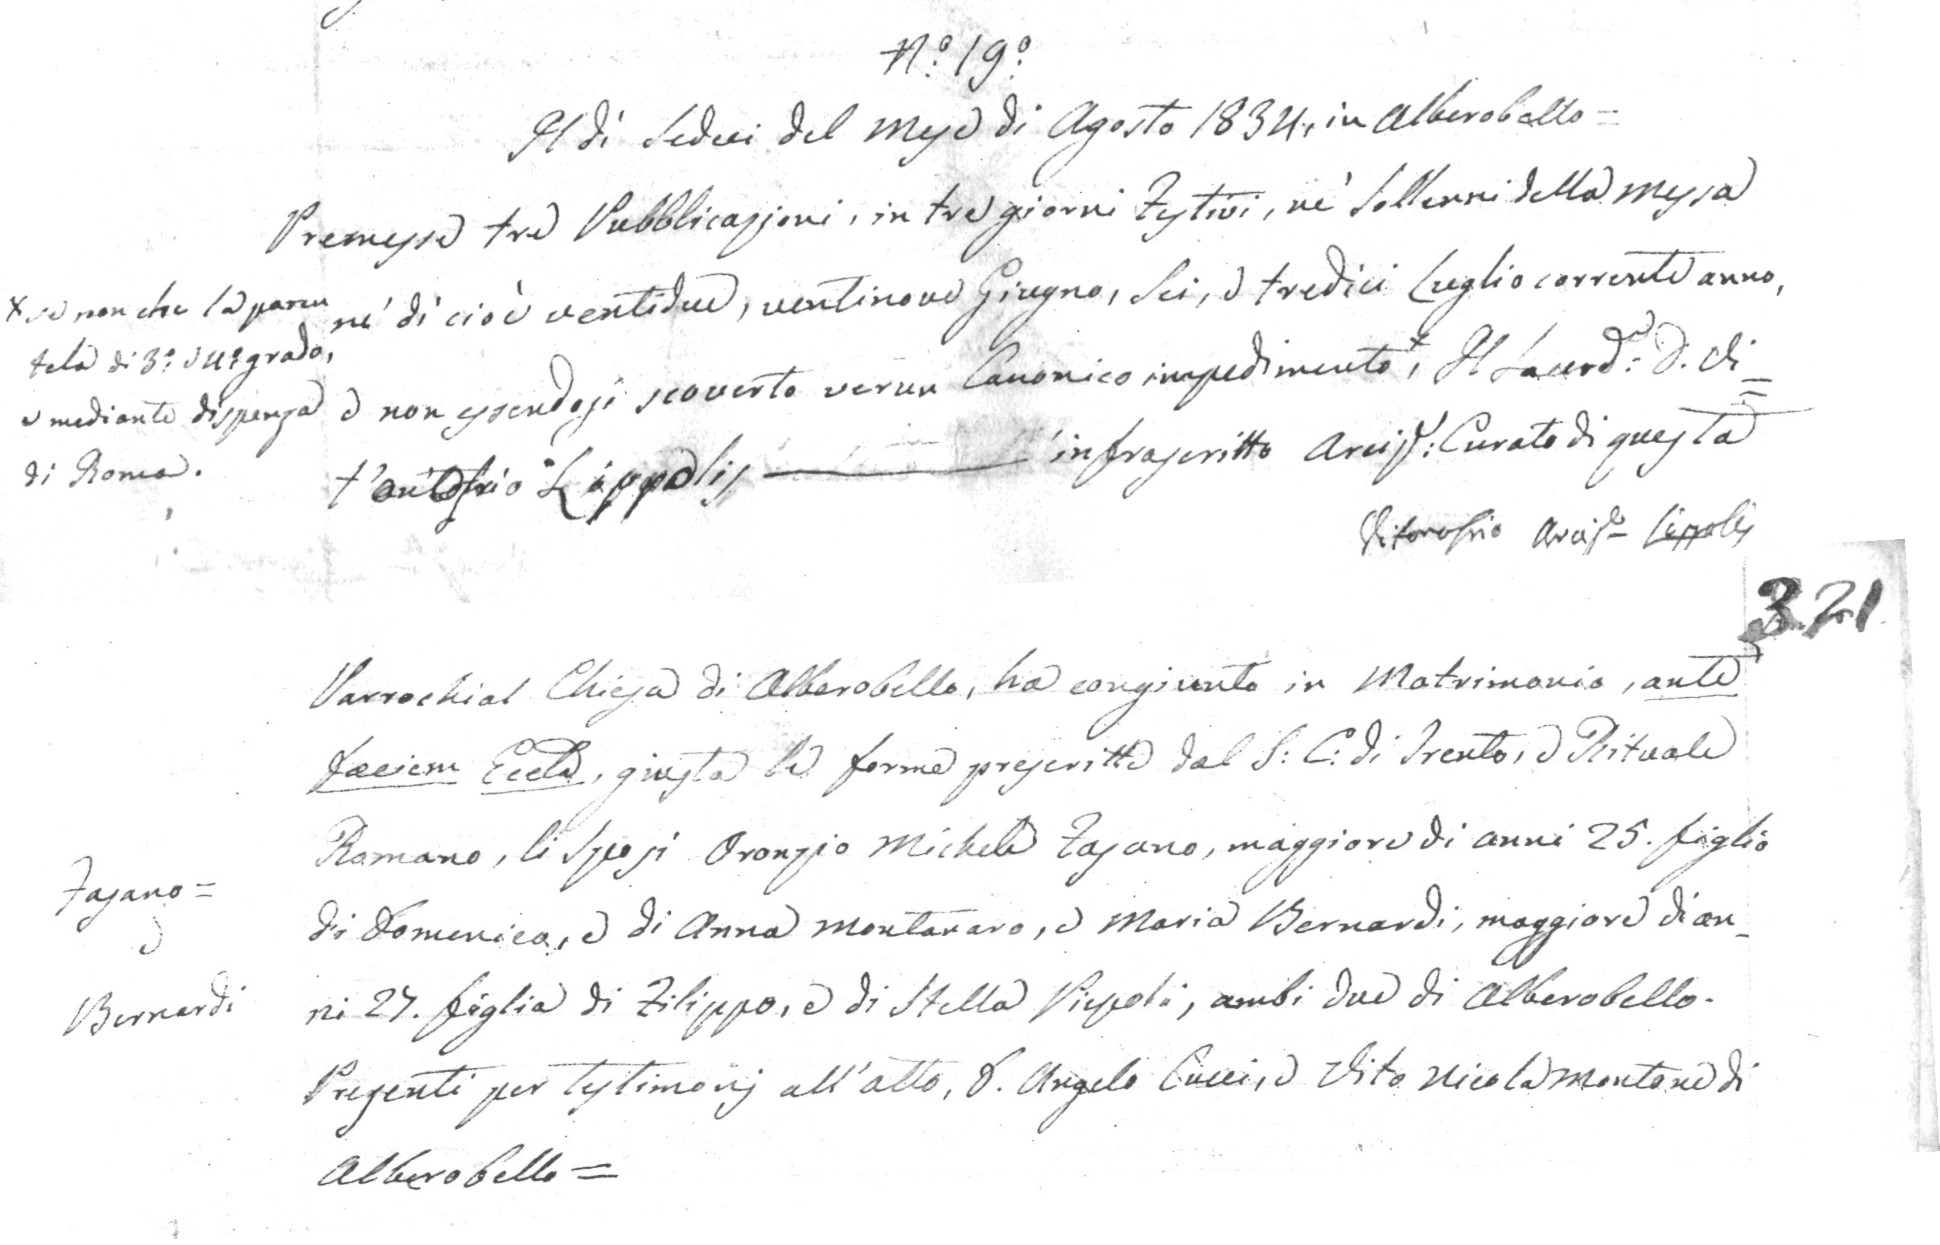 N.º 19º
Il dì Sedeci del Mese di Agosto 1834, in Alberobello =
Premesse tre Pubblicazioni, in tre giorni Festivi, ne' Sollenni della Messa
ne' dì cioè ventidue, ventinove Giugno, Sei, e tredici Luglio corrente anno,
e non essendosi scoverto verun Canonico impedimento x, Il Sacerd.e: D. Vi=
t'Onofrio Lippolis — infrascritto Arcip.: Curato di questa
Vitonofrio Arcip.e Lippolis
x se non che la paren
tela di 3.º e 4.º grado,
e mediante dispensa
di Roma.
321
Parrochial Chiesa di Alberobello, ha congiunto in Matrimonio, ante
faciem Eccle, giusta le forme prescritte dal S: C: di Trento, e Rituale
Romano, li Sposi Oronzio Michele Fasano, maggiore di anni 25. figlio
di Domenico, e di Anna Montanaro, e Maria Bernardi, maggiore di an_
ni 27. figlia di Filippo, e di Stella Piepoli, ambi due di Alberobello.
Presenti per testimonj all'atto, D. Angelo Cucci, e Vito Nicola Montone di
Alberobello =
Fasano =
e
Bernardi